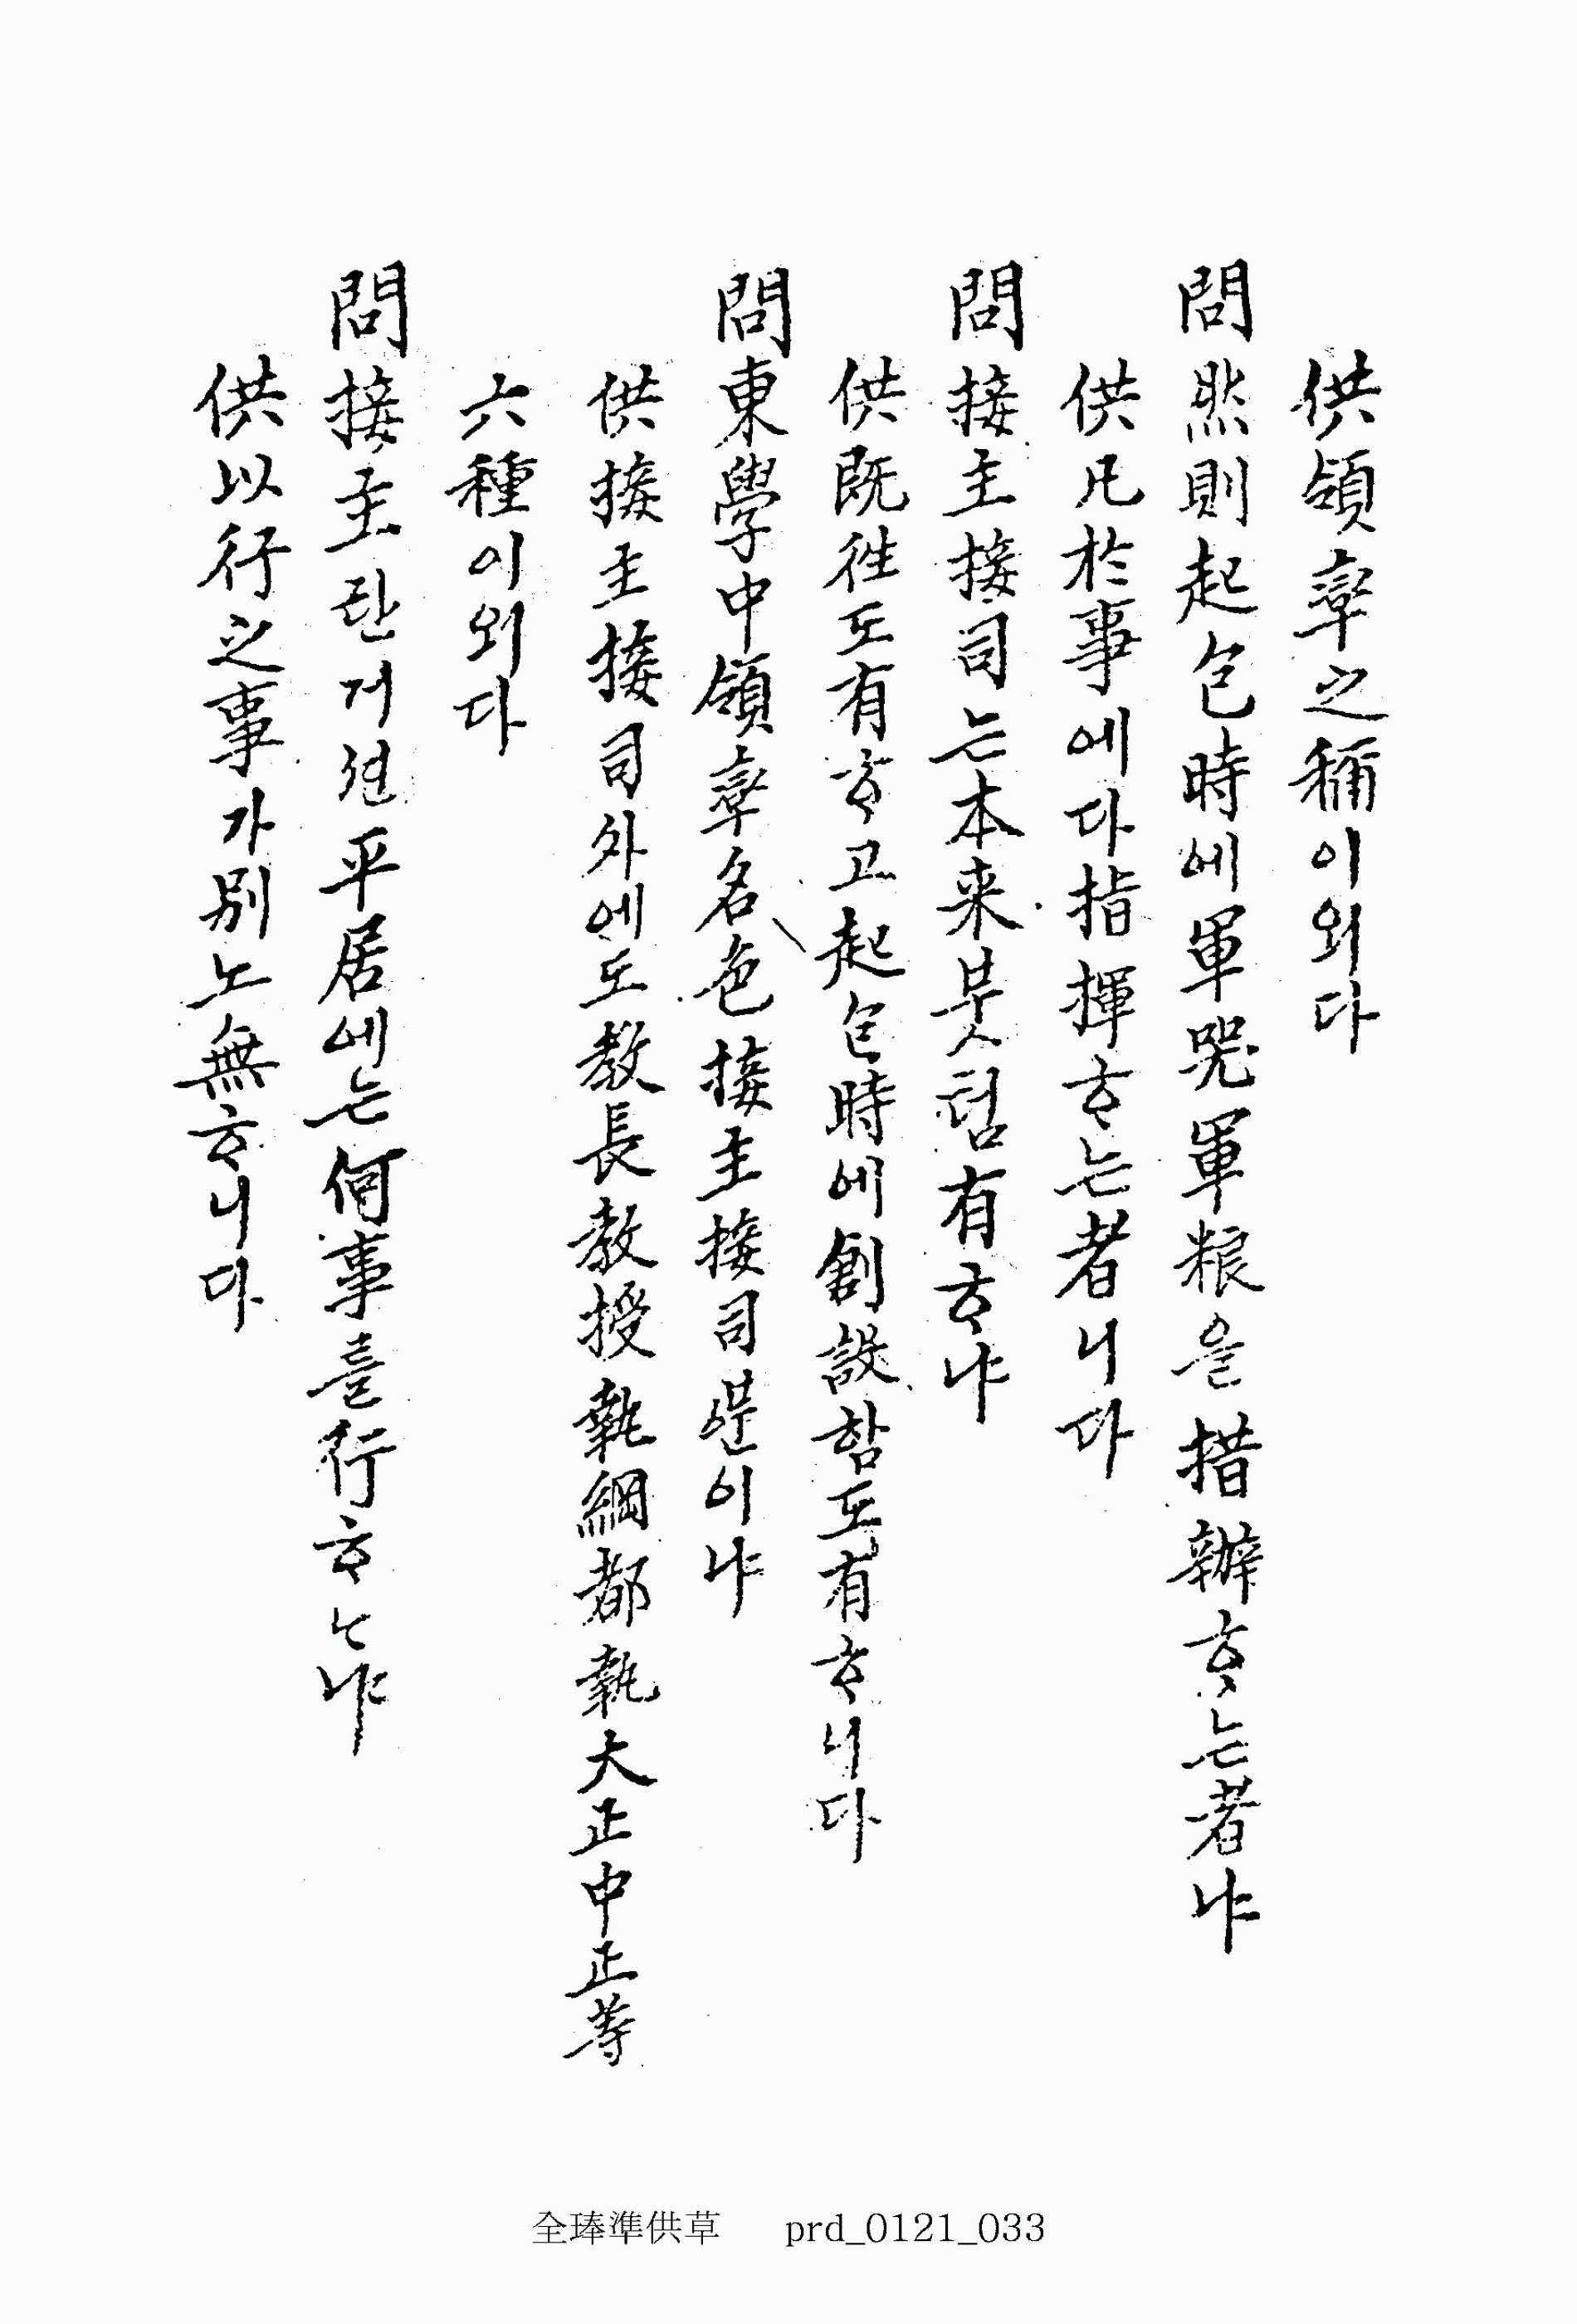 供領率之稱이외다
問然則起包時에軍器軍粮을措辦ᄒᆞ는者냐
供凡於事에다指揮ᄒᆞ는者니다
問接主接司는本来붓텀有ᄒᆞ냐
供既往도有ᄒᆞ고起包時에創設함도有ᄒᆞ니다
問東學中領率名色接主接司ᄲᅮᆫ이냐
供接主接司外에도教長教授執綱都執大正中正等
六種이외다
問接主란거션平居에는何事를行ᄒᆞᄂᆞ냐
供以行之事가別노無ᄒᆞ니다
全琫準供草 prd_0121_033